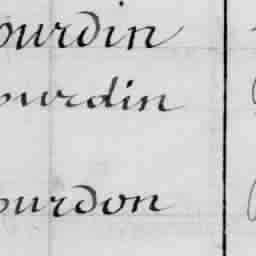 ourdin
ourdin
ourdon